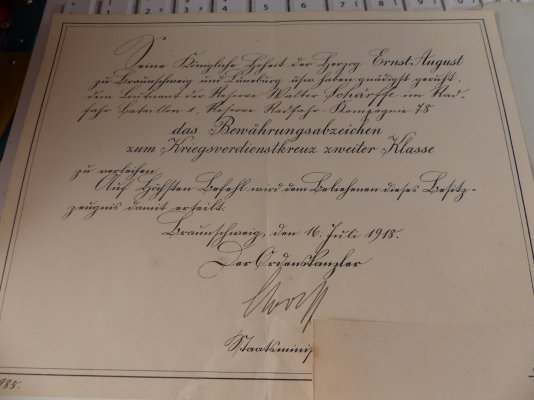 Seine Königliche Hoheit der Herzog Ernst August
zu Braunschweig und Lüneburg usw. haben gnädigst geruht,
dem Leutnant der Reserve Walter Scharffe im Rad-
fahr Bataillon 1, Reserve Radfahr-Kompagnie 78
das Bewährungsabzeichen
zum Kriegsverdienstkreuz zweiter Klasse
zu verleihen.
Auf Höchsten Befehl wird dem Beliehenen dieses Besitz-
zeugnis damit erteilt.
Braunschweig, den 16. Juli 1918.
Der Ordenskanzler
Staatsminis
985.